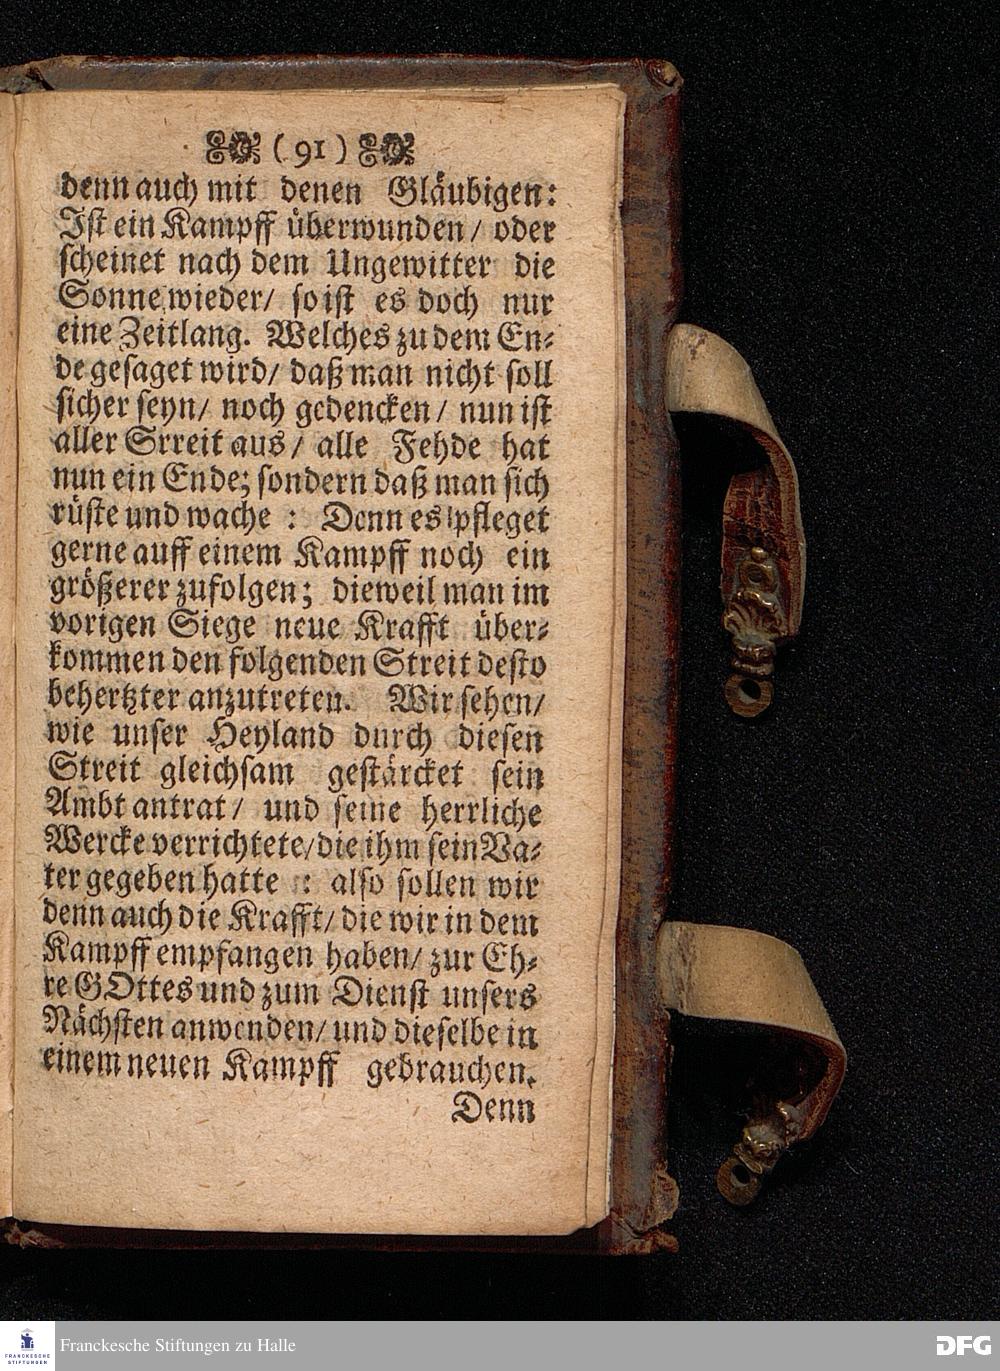 ( 91 )
denn auch mit denen Gläubigen:
Ist ein Kampff überwunden/ oder
scheinet nach dem Ungewitter die
Sonne wieder/ so ist es doch nur
eine Zeitlang. Welches zu dem En-
de gesaget wird/ daß man nicht soll
sicher seyn/ noch gedencken/ nun ist
aller Srreit aus/ alle Fehde hat
nun ein Ende; sondern daß man sich
rüste und wache : Denn es pfleget
gerne auff einem Kampff noch ein
größerer zufolgen; dieweil man im
vorigen Siege neue Krafft über-
kommen den folgenden Streit desto
behertzter anzutreten. Wir sehen/
wie unser Heyland durch diesen
Streit gleichsam gestärcket sein
Ambt antrat/ und seine herrliche
Wercke verrichtete/ die ihm sein Va-
ter gegeben hatte : also sollen wir
denn auch die Krafft/ die wir in dem
Kampff empfangen haben/ zur Eh-
re GOttes und zum Dienst unsers
Nächsten anwenden/ und dieselbe in
einem neuen Kampff gebrauchen.
Denn
FRANCKESCHE STIFTUNGEN
Franckesche Stiftungen zu Halle
DFG